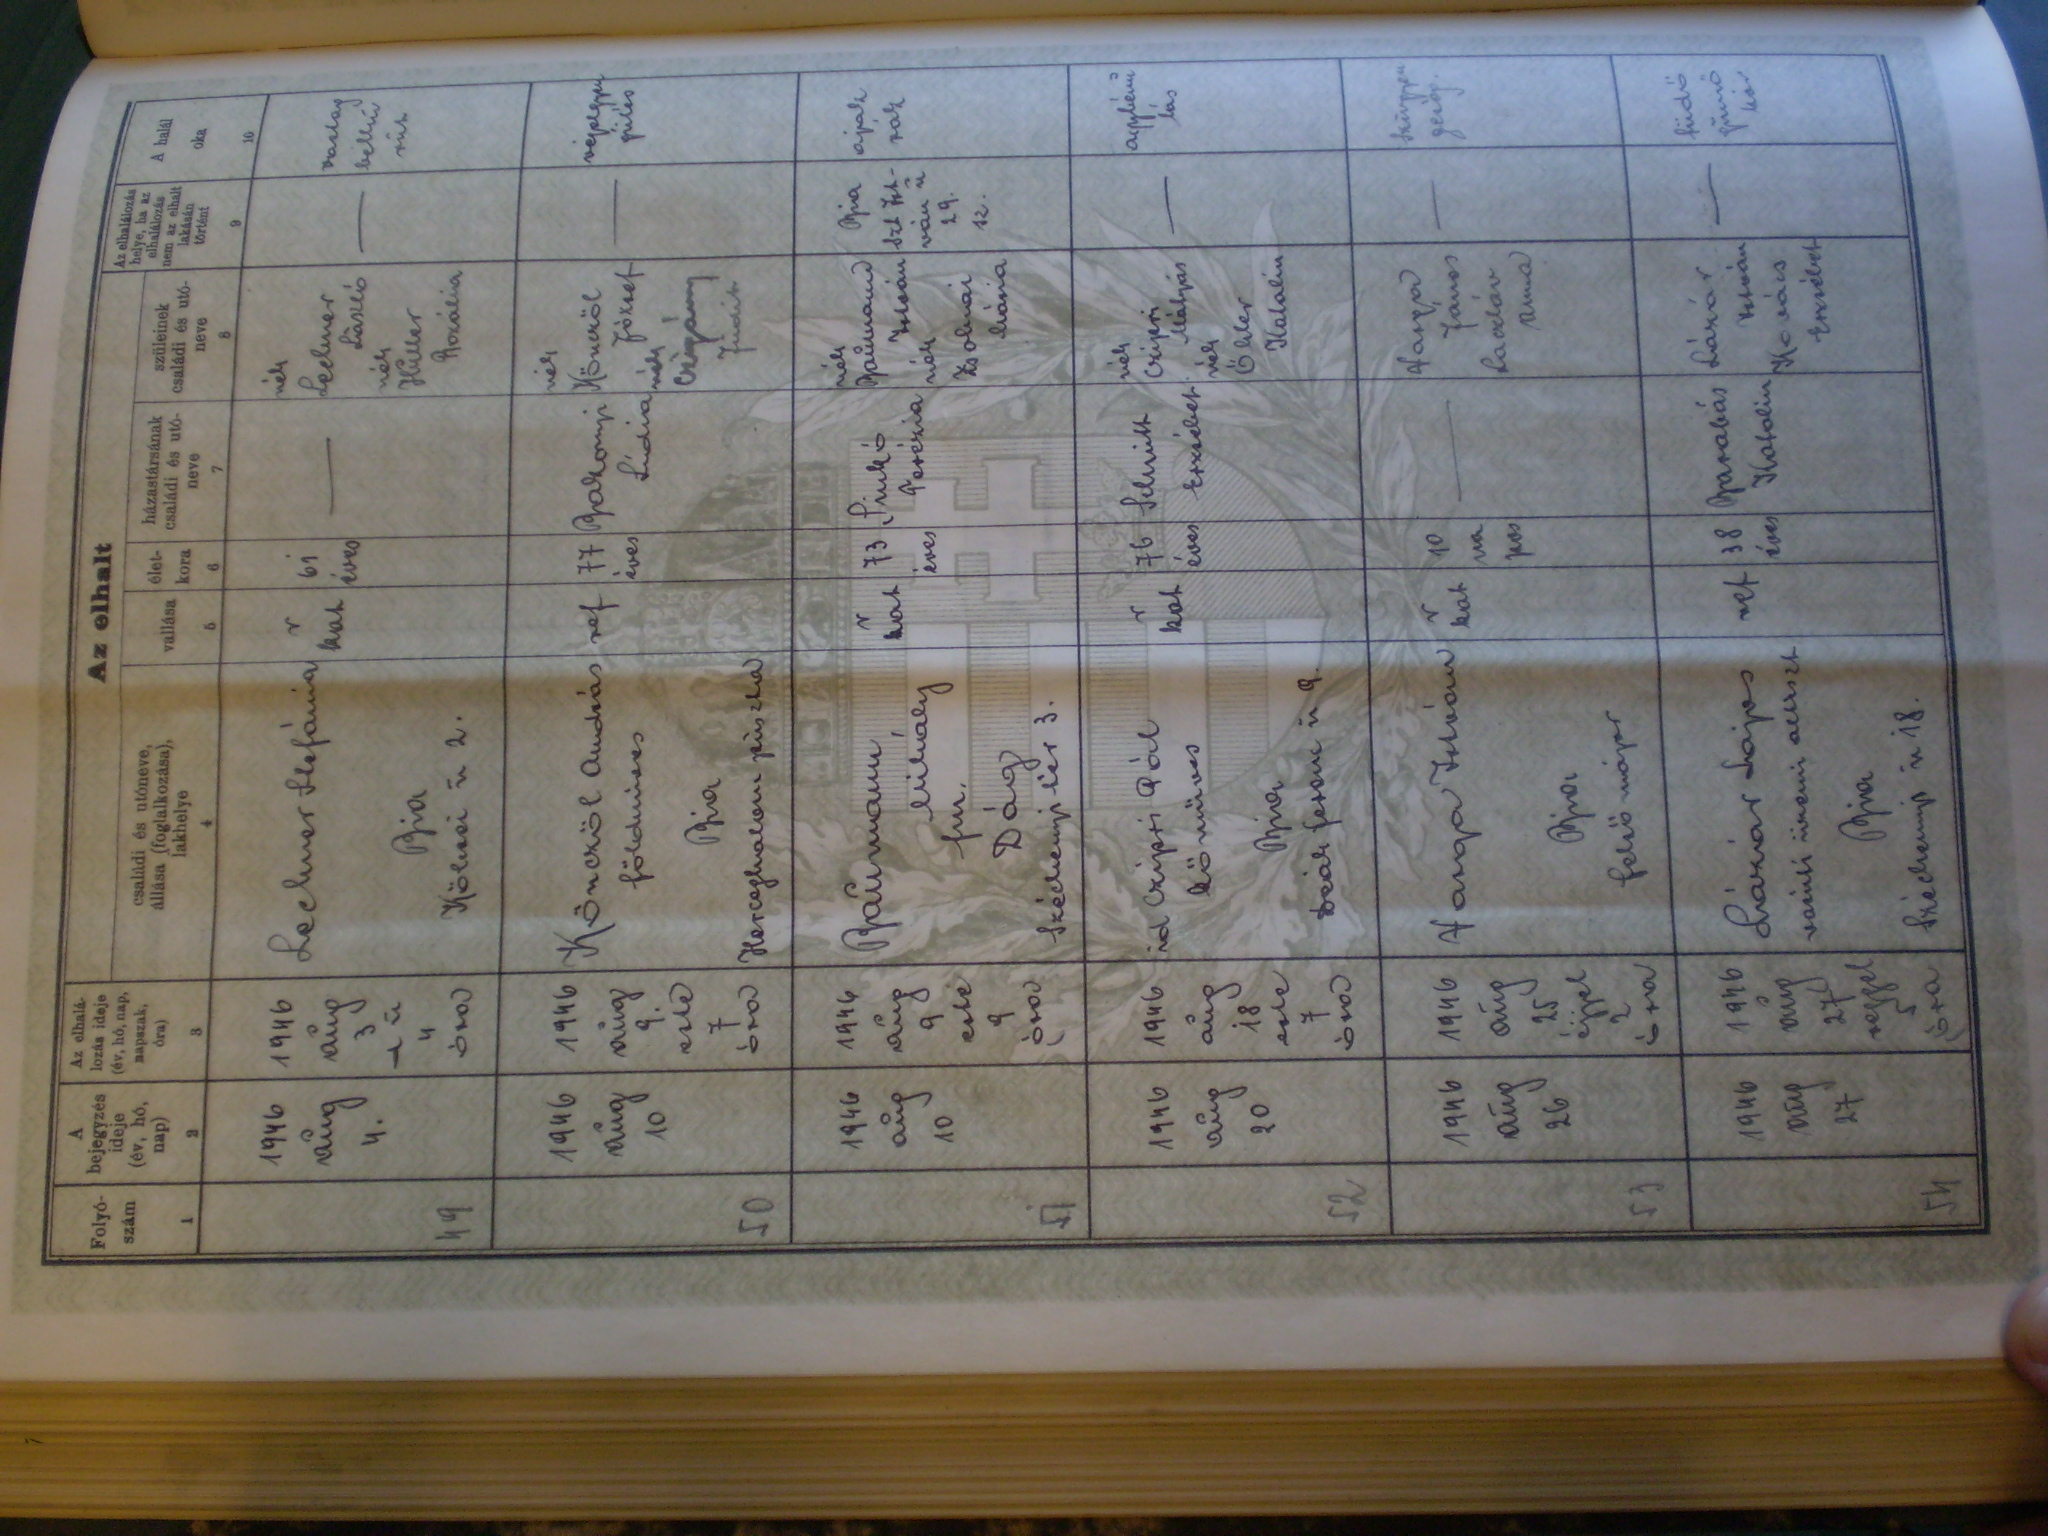 Az elhalt
Folyó-
szám
A
bejegyzés
ideje
(év, hó,
nap)
Az elhalá-
lozás ideje
(év, hó, nap,
napszak,
óra)
családi és utóneve,
állása (foglalkozása),
lakhelye
vallása
élet-
kora
házastársának
családi és utó-
neve
szüleinek
családi és utó-
neve
Az elhalálozás
helye, ha az
elhalálozás
nem az elhalt
lakásán
történt
A halál
oka
1
2
3
4
5
6
7
8
9
10
49
1946
aug
4.
1946
aug
3
du
4
óra
Lechner Stefánia
Bia
u 2.
r
kat
61
éves
—
néh
Lechner
László
néh
Hiller
Rozália
—
50
1946
aug
10
1946
aug
9.
este
7
óra
Könczöl András
földmíves
Bia
Herceghalom puszta
ref
77
éves
Bakonyi
Lídia
néh
Könczöl
József
néh
Czigány
Judit
—
végelgyen
gülés
51
1946
aug
10
1946
aug
9
este
9
óra
Baumann
Mihály
fm.
Dág
Széchenyi tér 3.
r
kat
73
éves
Sinkó
Terézia
néh
Baumann
István
néh
Zsolnai
Mária
Bia
Szt Ist-
ván u
29.
sz.
52
1946
aug
20
1946
aug
18
este
7
óra
id Czipri Pál
kőműves
Bia
Deák ferenc u 9.
r
kat
76
éves
Schmidt
Erzsébet
néh
Czipri
Mátyás
néh
Katalin
—
aggkori
53
1946
aug
26
1946
aug
25
éjjel
2
óra
Hanga István
Bia
felső major
r
kat
10
na
pos
—
Hanga
János
Laczláv
Anna
—
54
1946
aug
27
1946
aug
27
reggel
5
óra
Lázár Lajos
Bia
Széchenyi u 18.
ref
38
éves
Barabás
Katalin
Lázár
István
Kovács
Erzsébet
—
tüdő
gümő
kór